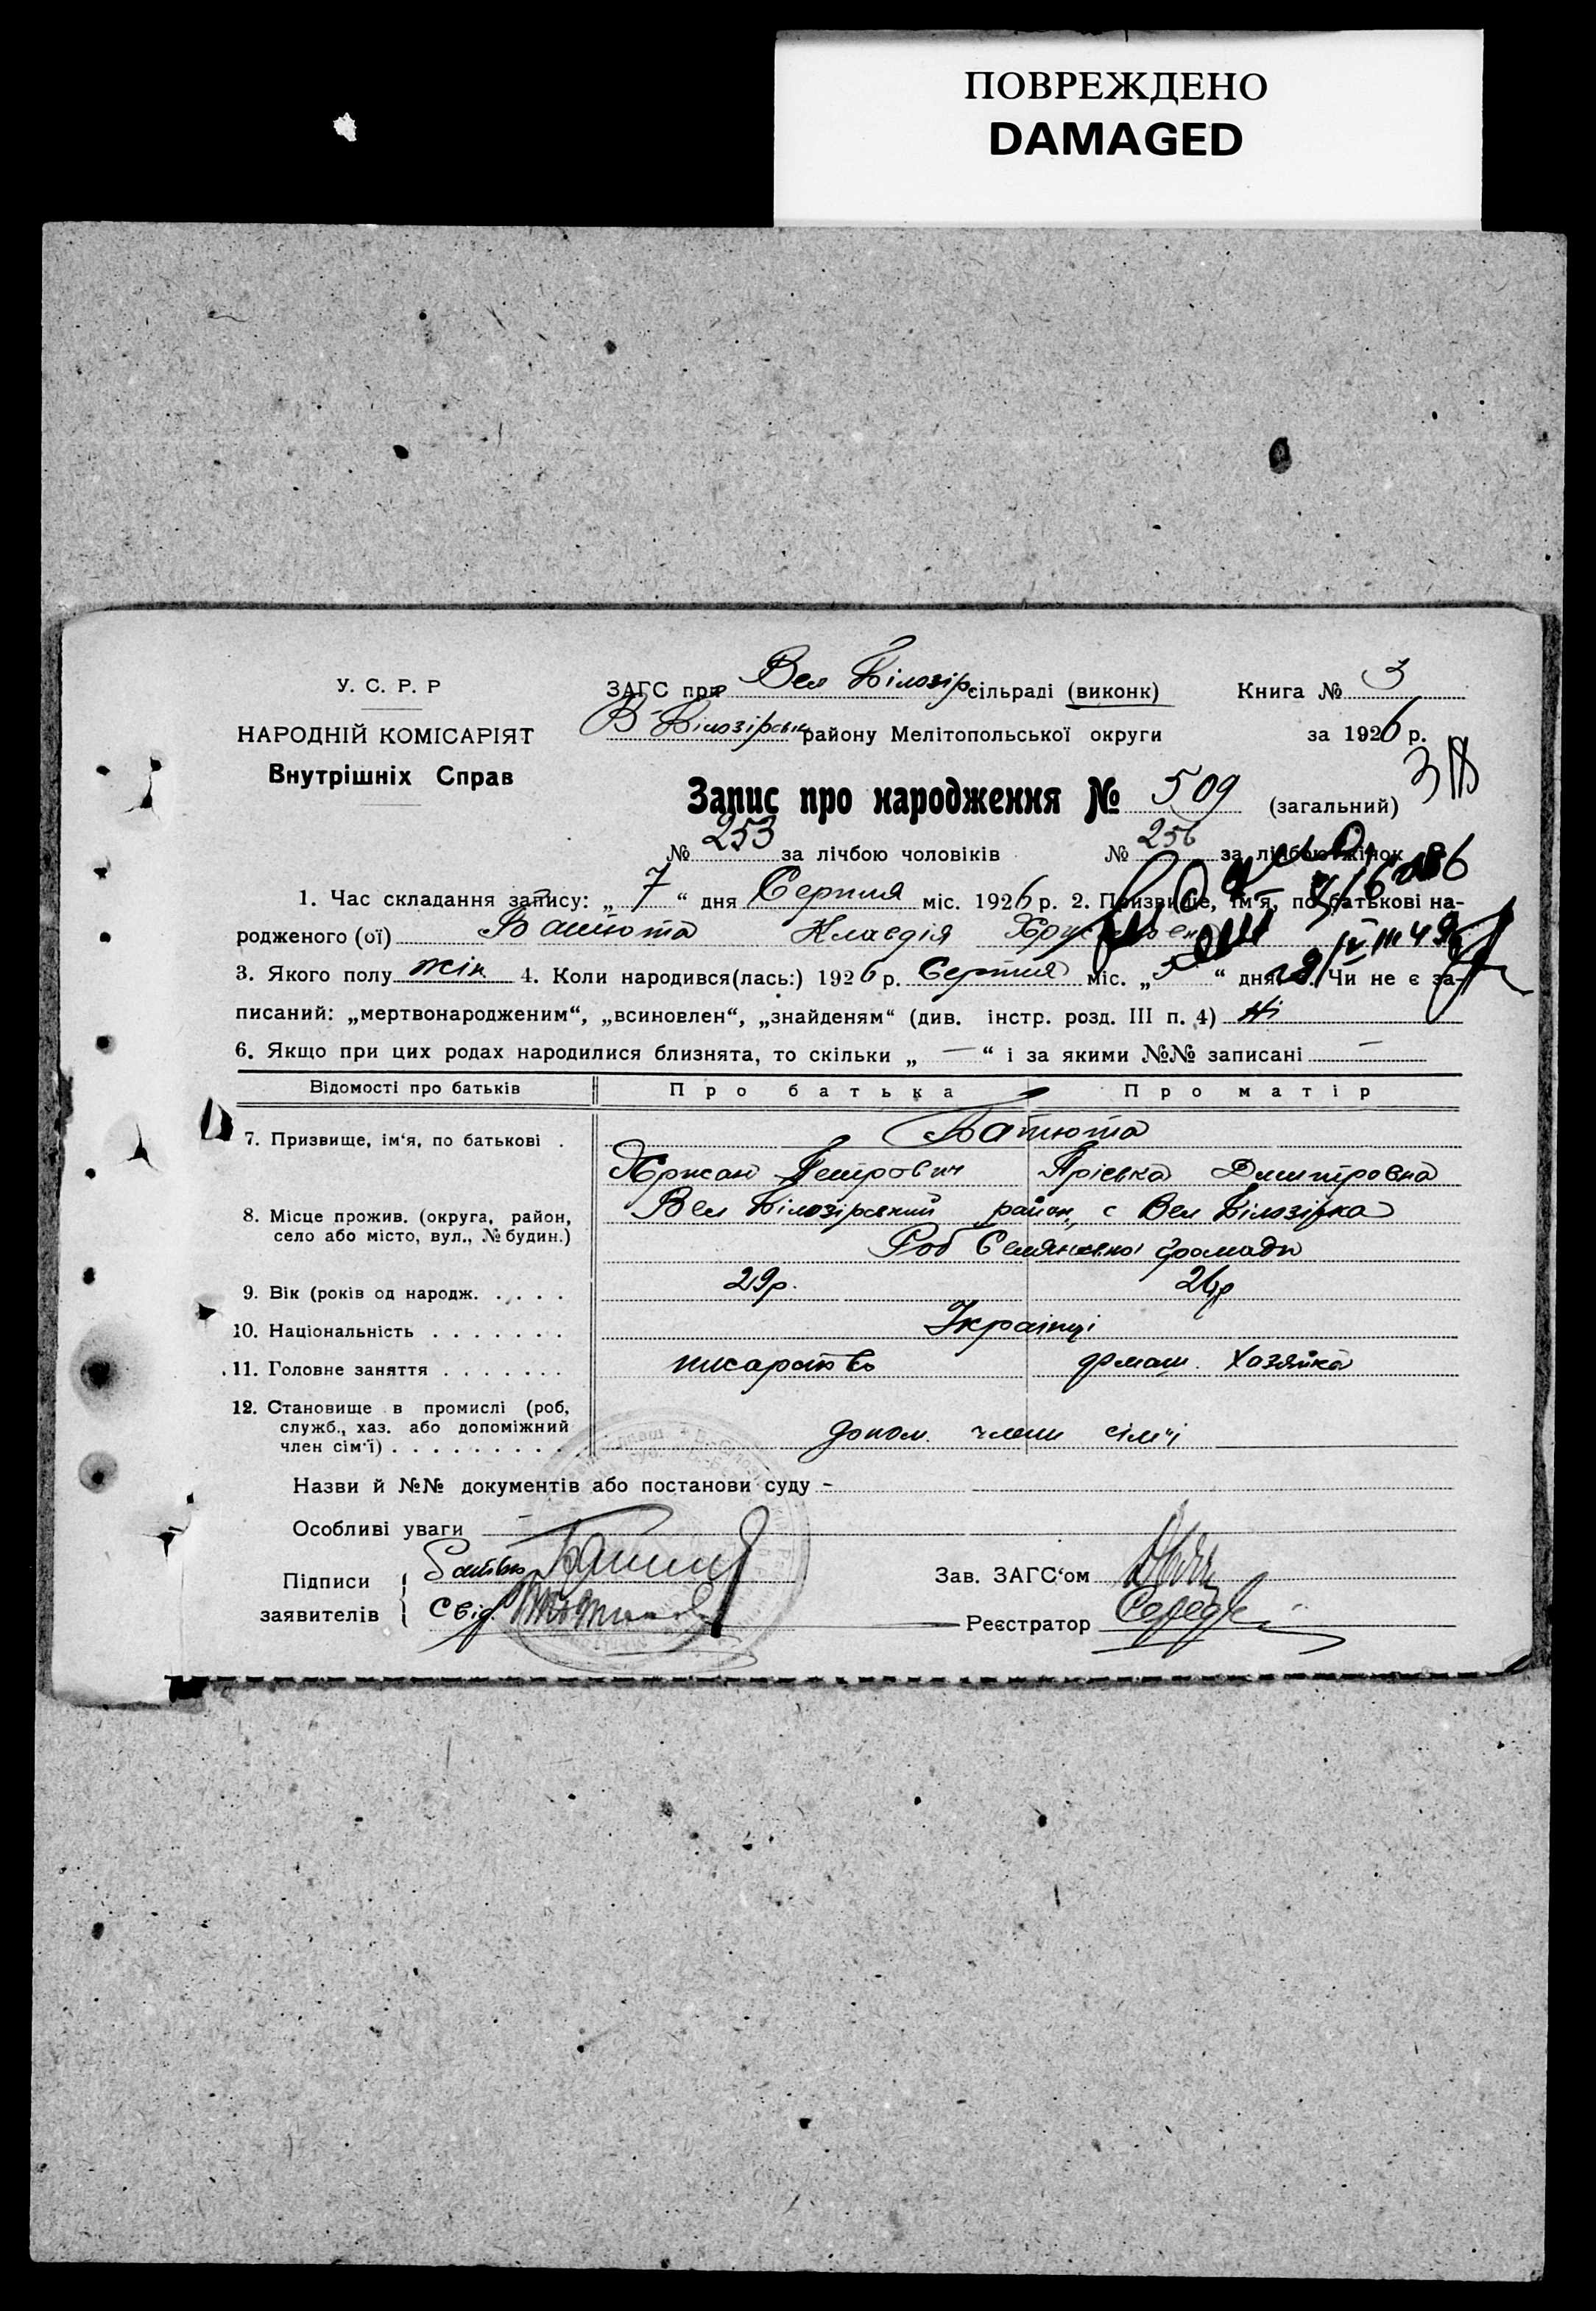 ПОВРЕЖДЕНО
DAMAGED
У. С. Р. Р
НАРОДНІЙ КОМІСАРІЯТ
Внутрішніх Справ
ЗАГС при Вел Білозір сільраді (виконк) Книга № 3
В-Білозірськ району Мелітопольської округи за 1926 р.
Запис про народження № 509 (загальний)
№ 253 за лічбою чоловіків № 256 за лічбою жінок
1. Час складання запису: „ 7 “ дня Серпня міс. 1926 р. 2. Призвище, ім'я, по батькові на-
родженого (ої) Батюта Клавдія
3. Якого полу жін 4. Коли народився(лась:) 1926 р. Серпня міс. „ 5 “ дня Чи не є за-
писаний: „мертвонародженим“, „всиновлен“, „знайденям“ (див. інстр. розд. III п. 4) Ні
6. Якщо при цих родах народилися близнята, то скільки „ — “ і за якими №№ записані —
Відомості про батьків Про батька Про матір
7. Призвище, ім'я, по батькові . Батюта
Петрович Пріська Дмитровна
8. Місце прожив. (округа, район, село або місто, вул., № будин.) Вел Білозірський район, с Вел Білозірка
громади
9. Вік (років од народж. . . . . 29р. 26р
10. Національність . . . . . . . Українці
11. Головне заняття . . . . . . . писарство домаш. хозяйка
12. Становище в промислі (роб,
служб., хаз. або допоміжний
член сім'ї) . . . . . . . . . допом. члени сім'ї
Назви й №№ документів або постанови суду -
Особливі уваги —
Підписи заявителів { Батько
Свід.
Зав. ЗАГС'ом
Реєстратор